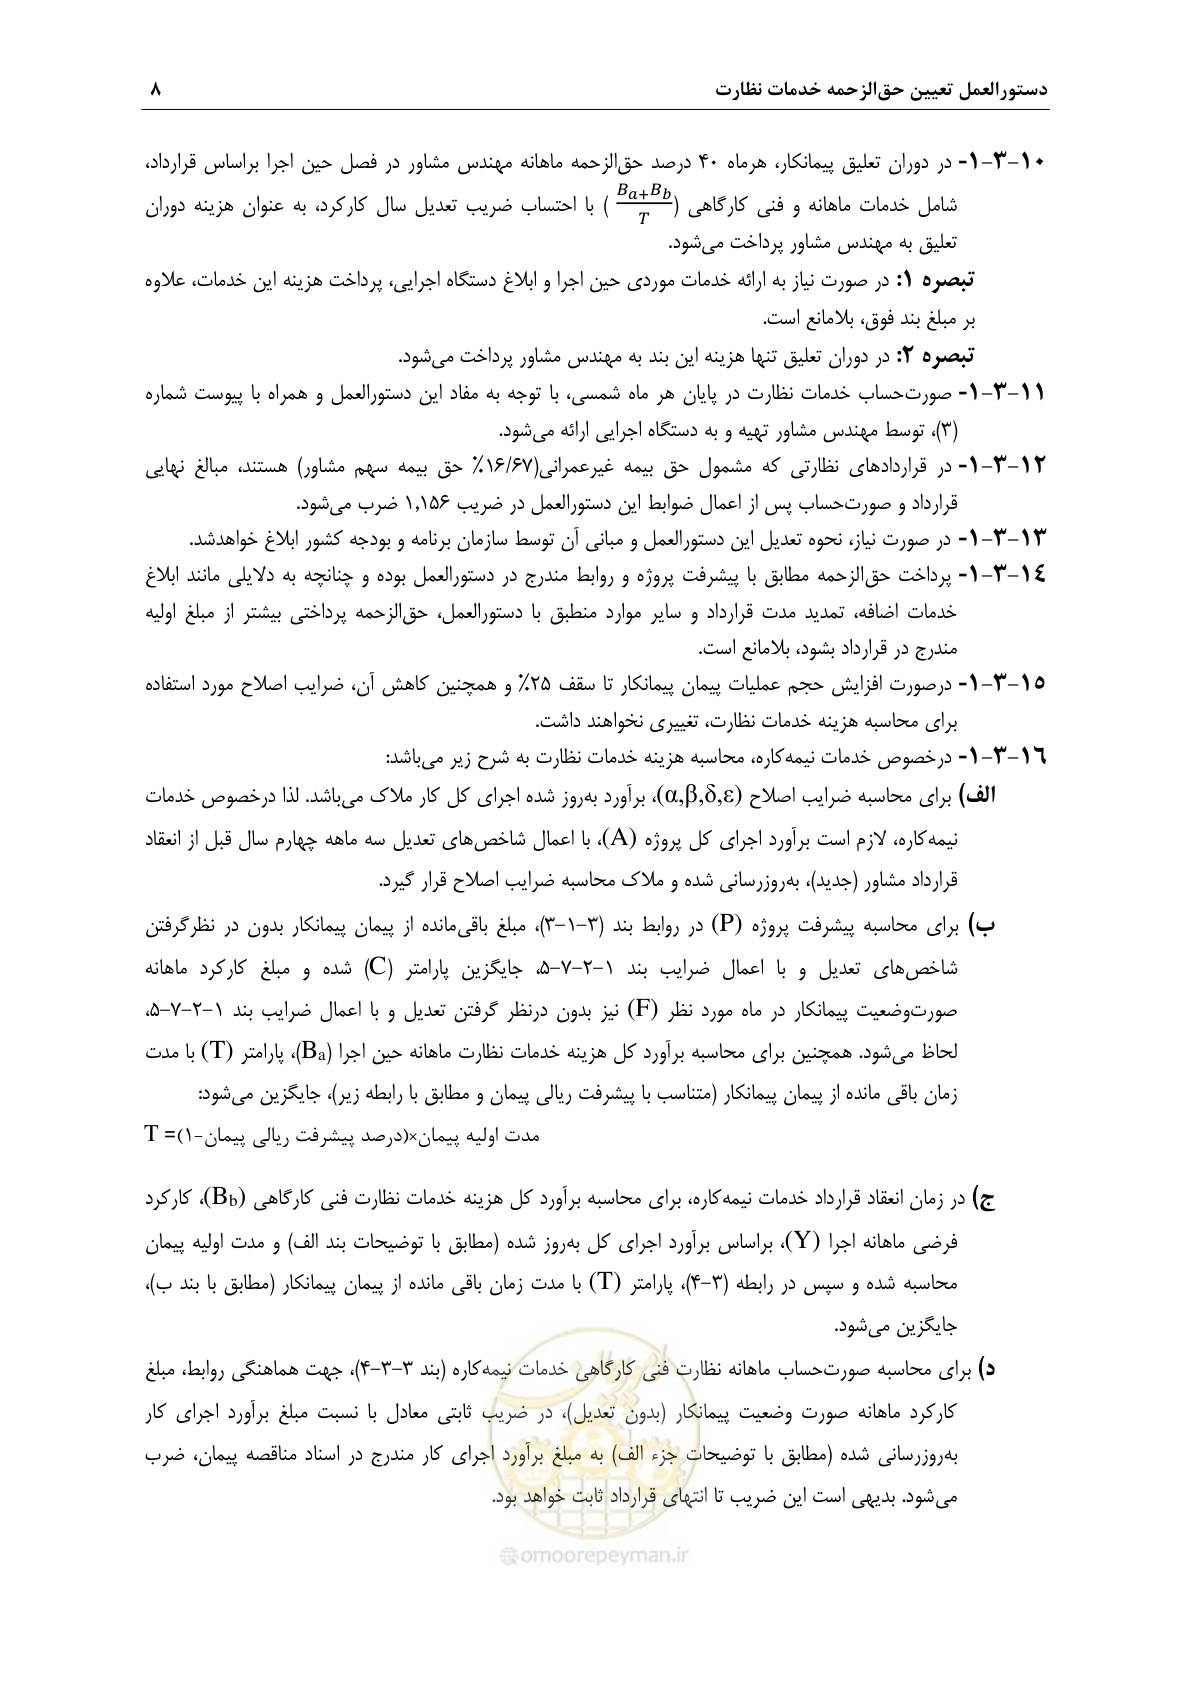 دستورالعمل تعیین حق‌الزحمه خدمات نظارت ۸
۱-۳-۱۰- در دوران تعلیق پیمانکار، هرماه ۴۰ درصد حق‌الزحمه ماهانه مهندس مشاور در فصل حین اجرا براساس قرارداد،
شامل خدمات ماهانه و فنی کارگاهی (Ba+Bb/T) با احتساب ضریب تعدیل سال کارکرد، به عنوان هزینه دوران
تعلیق به مهندس مشاور پرداخت می‌شود.
تبصره ۱: در صورت نیاز به ارائه خدمات موردی حین اجرا و ابلاغ دستگاه اجرایی، پرداخت هزینه این خدمات، علاوه
بر مبلغ بند فوق، بلامانع است.
تبصره ۲: در دوران تعلیق تنها هزینه این بند به مهندس مشاور پرداخت می‌شود.
۱-۳-۱۱- صورت‌حساب خدمات نظارت در پایان هر ماه شمسی، با توجه به مفاد این دستورالعمل و همراه با پیوست شماره
(۳)، توسط مهندس مشاور تهیه و به دستگاه اجرایی ارائه می‌شود.
۱-۳-۱۲- در قراردادهای نظارتی که مشمول حق بیمه غیرعمرانی(۱۶/۶۷٪ حق بیمه سهم مشاور) هستند، مبالغ نهایی
قرارداد و صورت‌حساب پس از اعمال ضوابط این دستورالعمل در ضریب ۱,۱۵۶ ضرب می‌شود.
۱-۳-۱۳- در صورت نیاز، نحوه تعدیل این دستورالعمل و مبانی آن توسط سازمان برنامه و بودجه کشور ابلاغ خواهدشد.
۱-۳-۱۴- پرداخت حق‌الزحمه مطابق با پیشرفت پروژه و روابط مندرج در دستورالعمل بوده و چنانچه به دلایلی مانند ابلاغ
خدمات اضافه، تمدید مدت قرارداد و سایر موارد منطبق با دستورالعمل، حق‌الزحمه پرداختی بیشتر از مبلغ اولیه
مندرج در قرارداد بشود، بلامانع است.
۱-۳-۱۵- درصورت افزایش حجم عملیات پیمان پیمانکار تا سقف ۲۵٪ و همچنین کاهش آن، ضرایب اصلاح مورد استفاده
برای محاسبه هزینه خدمات نظارت، تغییری نخواهند داشت.
۱-۳-۱۶- درخصوص خدمات نیمه‌کاره، محاسبه هزینه خدمات نظارت به شرح زیر می‌باشد:
الف) برای محاسبه ضرایب اصلاح (α,β,δ,ε)، برآورد به‌روز شده اجرای کل کار ملاک می‌باشد. لذا درخصوص خدمات
نیمه‌کاره، لازم است برآورد اجرای کل پروژه (A)، با اعمال شاخص‌های تعدیل سه ماهه چهارم سال قبل از انعقاد
قرارداد مشاور (جدید)، به‌روزرسانی شده و ملاک محاسبه ضرایب اصلاح قرار گیرد.
ب) برای محاسبه پیشرفت پروژه (P) در روابط بند (۳-۱-۳)، مبلغ باقی‌مانده از پیمان پیمانکار بدون در نظرگرفتن
شاخص‌های تعدیل و با اعمال ضرایب بند ۱-۲-۷-۵، جایگزین پارامتر (C) شده و مبلغ کارکرد ماهانه
صورت‌وضعیت پیمانکار در ماه مورد نظر (F) نیز بدون درنظر گرفتن تعدیل و با اعمال ضرایب بند ۱-۲-۷-۵،
لحاظ می‌شود. همچنین برای محاسبه برآورد کل هزینه خدمات نظارت ماهانه حین اجرا (Ba)، پارامتر (T) با مدت
زمان باقی مانده از پیمان پیمانکار (متناسب با پیشرفت ریالی پیمان و مطابق با رابطه زیر)، جایگزین می‌شود:
مدت اولیه پیمان×(درصد پیشرفت ریالی پیمان-۱)= T
ج) در زمان انعقاد قرارداد خدمات نیمه‌کاره، برای محاسبه برآورد کل هزینه خدمات نظارت فنی کارگاهی (Bb)، کارکرد
فرضی ماهانه اجرا (Y)، براساس برآورد اجرای کل به‌روز شده (مطابق با توضیحات بند الف) و مدت اولیه پیمان
محاسبه شده و سپس در رابطه (۳-۴)، پارامتر (T) با مدت زمان باقی مانده از پیمان پیمانکار (مطابق با بند ب)،
جایگزین می‌شود.
د) برای محاسبه صورت‌حساب ماهانه نظارت فنی کارگاهی خدمات نیمه‌کاره (بند ۳-۳-۴)، جهت هماهنگی روابط، مبلغ
کارکرد ماهانه صورت وضعیت پیمانکار (بدون تعدیل)، در ضریب ثابتی معادل با نسبت مبلغ برآورد اجرای کار
به‌روزرسانی شده (مطابق با توضیحات جزء الف) به مبلغ برآورد اجرای کار مندرج در اسناد مناقصه پیمان، ضرب
می‌شود. بدیهی است این ضریب تا انتهای قرارداد ثابت خواهد بود.
@omoorepeyman.ir